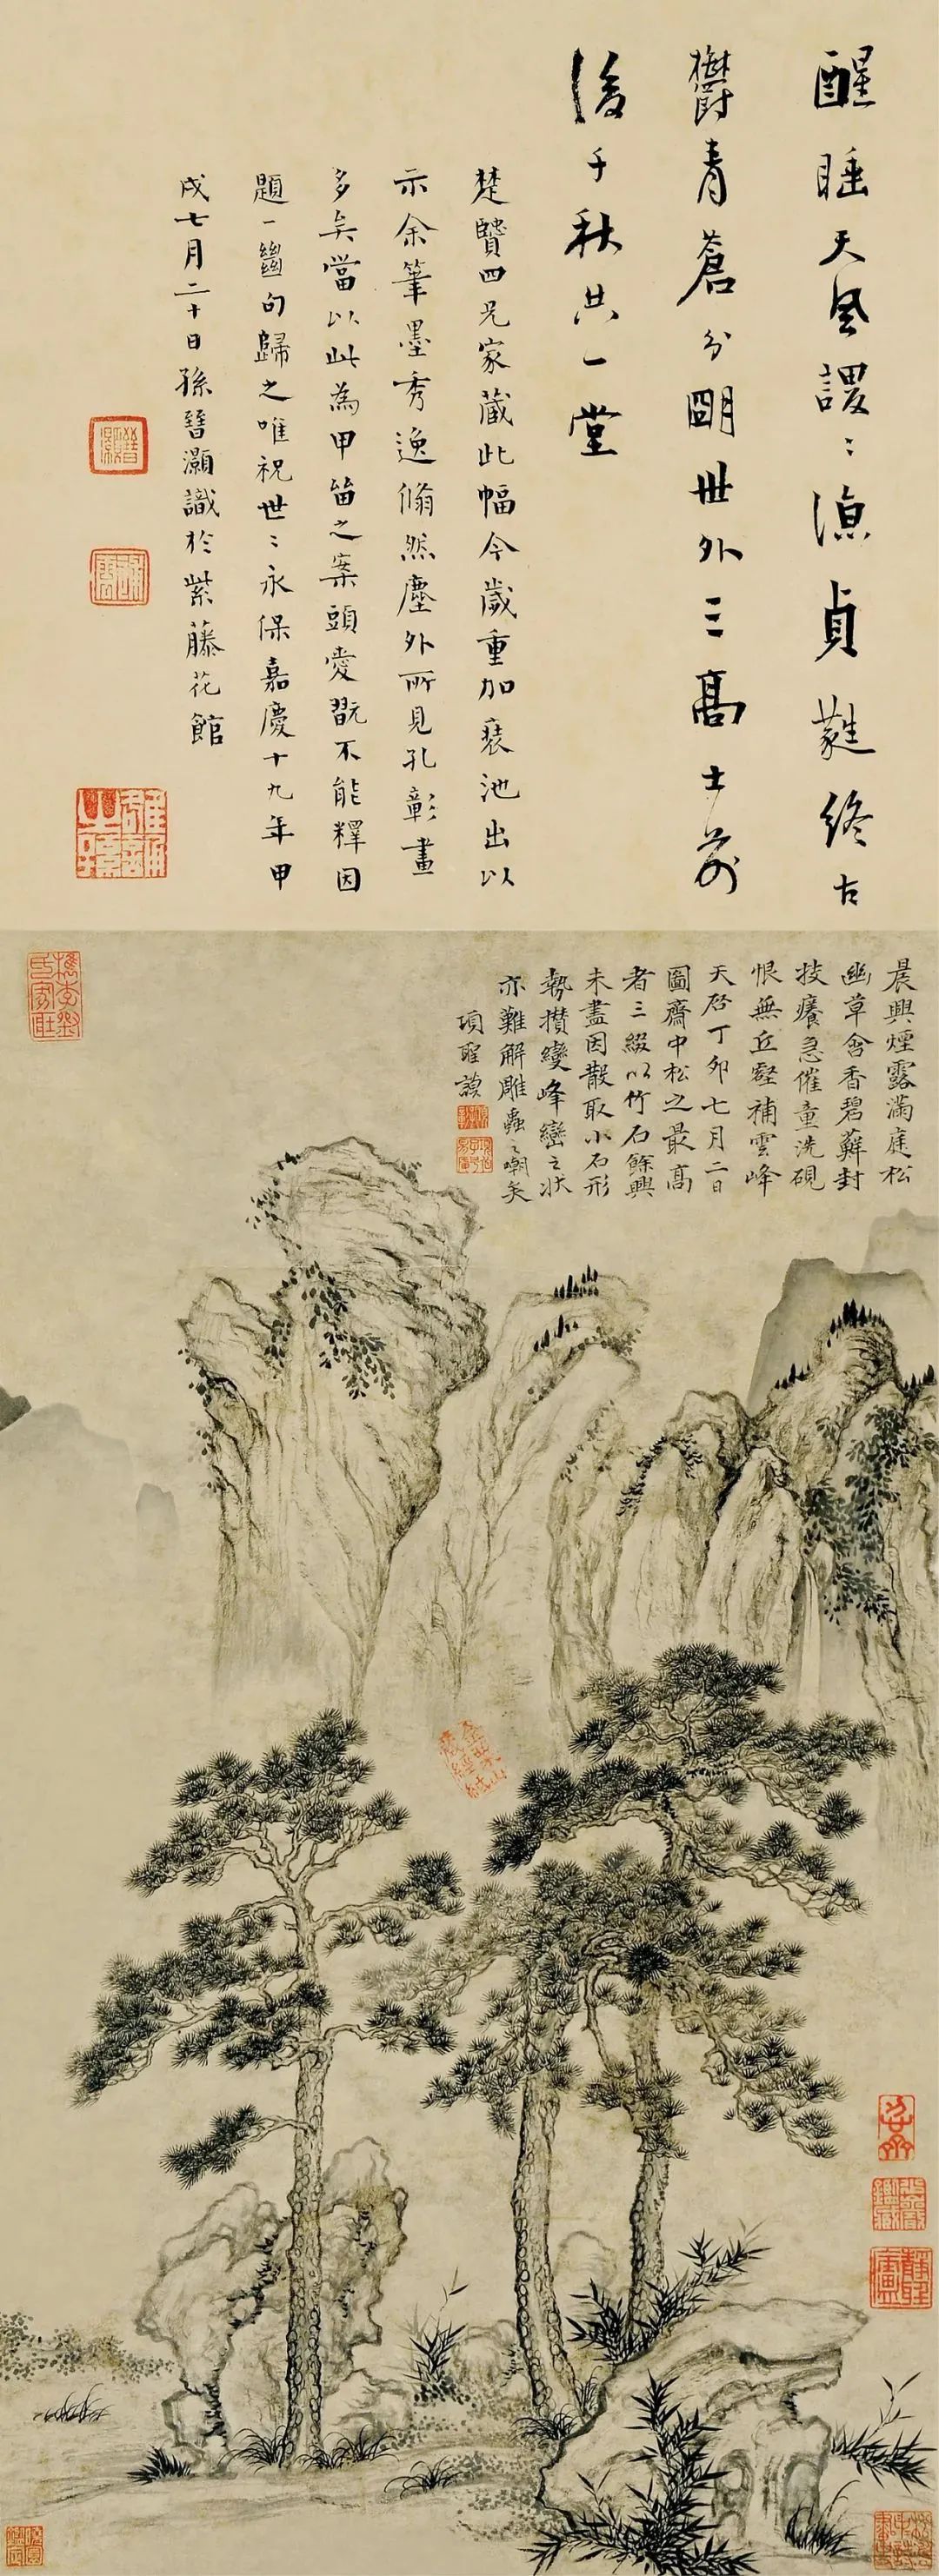 醒睡天風謖〻涼貞蕤終古
鬱青蒼分明世外三高士前
後千秋共一堂
楚贒四兄家藏此幅今歲重加裝池出以
示余筆墨秀逸翛然塵外所見孔彰畫
多矣當以此為甲笛之案頭愛翫不能釋因
題一幽句歸之唯祝世〻永保嘉慶十九年甲
戌七月二十日孫晉灝識於紫藤花館
晨興煙露滿庭松
幽草含香碧蘚封
技癢急催童洗硯
恨無丘壑補雲峰
天啟丁卯七月二日
圖齋中松之最高
者三綴以竹石餘興
未盡因散取小石形
勢攢變峰巒之狀
亦難解雕蟲之嘲矣
項聖謨
金粟山
藏經紙